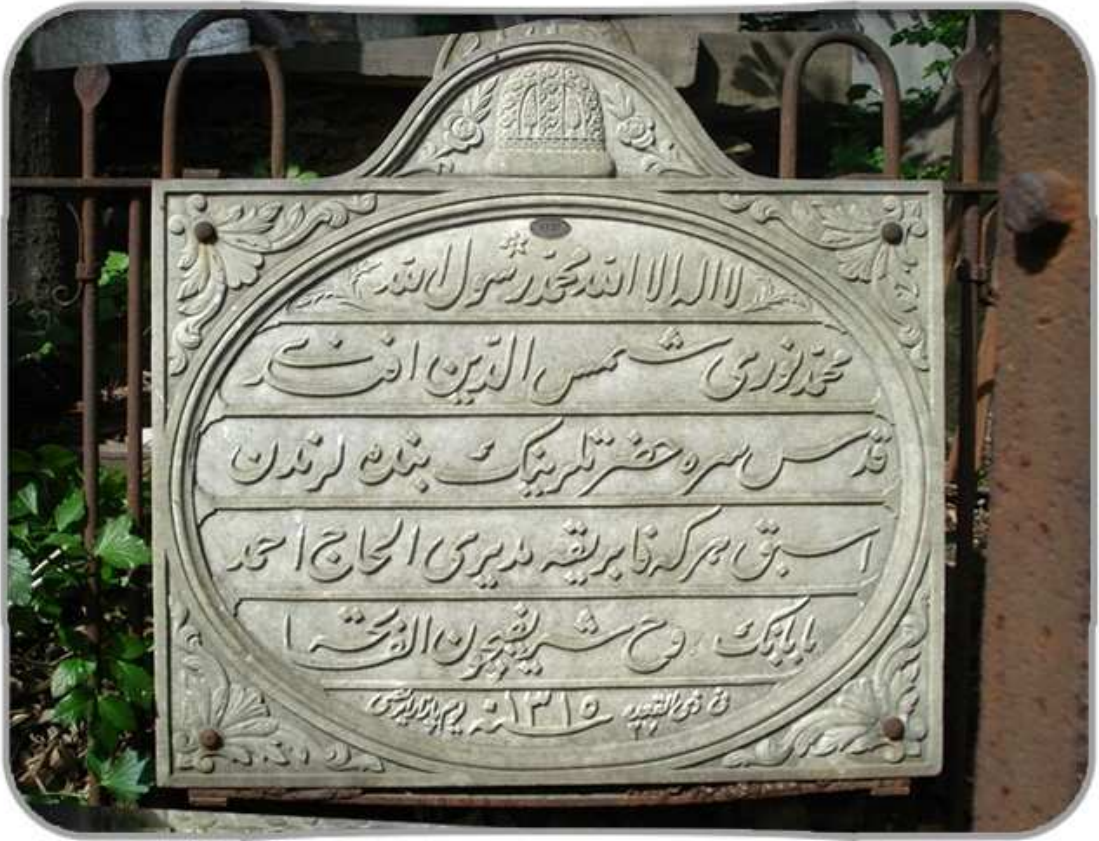 لا اله الا الله محمد رسول الله
محمد نوری شمس الدین افندی
قدس سره حضرتلرینک بنده لرندن
اسبق هرکه فابریقه مدیری الحاج احمد
بابانک روح شریفیچون الفاتحه
فی ذی القعده سنه ١٣١٥ یوم